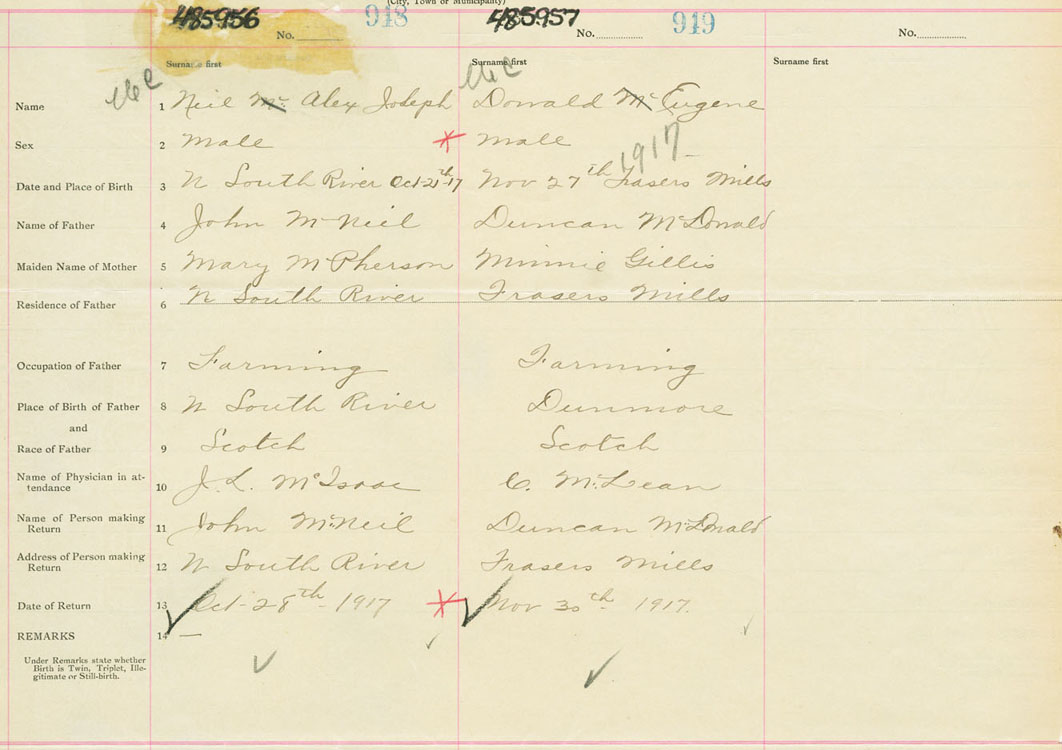 (City, Town or Municipality)
485956 No. 918 485957 No. 919 No.
Surname first Surname first Surname first
Mc Mc
Name 1 Neil Mc Alex Joseph Donald Mc Eugene
Sex 2 Male Male
1917
Date and Place of Birth 3 N South River Oct-21th-17 Nov 27th Frasers Mills
Name of Father 4 John McNeil Duncan McDonald
Maiden Name of Mother 5 Mary McPherson Minnie Gillis
Residence of Father 6 N South River Frasers Mills
Occupation of Father 7 Farming Farming
Place of Birth of Father 8 N South River Dunmore
and
Race of Father 9 Scotch Scotch
Name of Physician in at-
tendance 10 J. L. McIsaac C. McLean
Name of Person making
Return 11 John McNeil Duncan McDonald
Address of Person making
Return 12 N South River Frasers Mills
Date of Return 13 Oct-28th-1917 Nov 30th 1917.
REMARKS 14 —
Under Remarks state whether
Birth is Twin, Triplet, Ille-
gitimate or Still-birth.